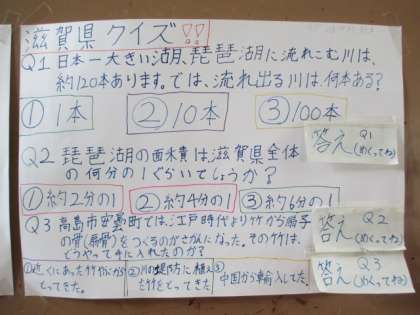 滋賀県クイズ!!
Q1 日本一大きい湖、琵琶湖に流れこむ川は、
約120本あります。では、流れ出る川は、何本ある?
①1本 ②10本 ③100本
答え Q1
(めくってね)
Q2 琵琶湖の面積は滋賀県全体
の何分の1ぐらいでしょうか?
①約2分の1 ②約4分の1 ③約6分の1
答え Q2
(めくってね)
Q3 高島市安曇町では、江戸時代より竹から扇子
の骨(扇骨)をつくるのがさかんになった。その竹は、
どうやって手に入れたのか?
①近くにあった竹やぶから
とってきた。
②川の堤防に植え
た竹をとってきた
③中国から輸入してた。
答え Q3
(めくってね)